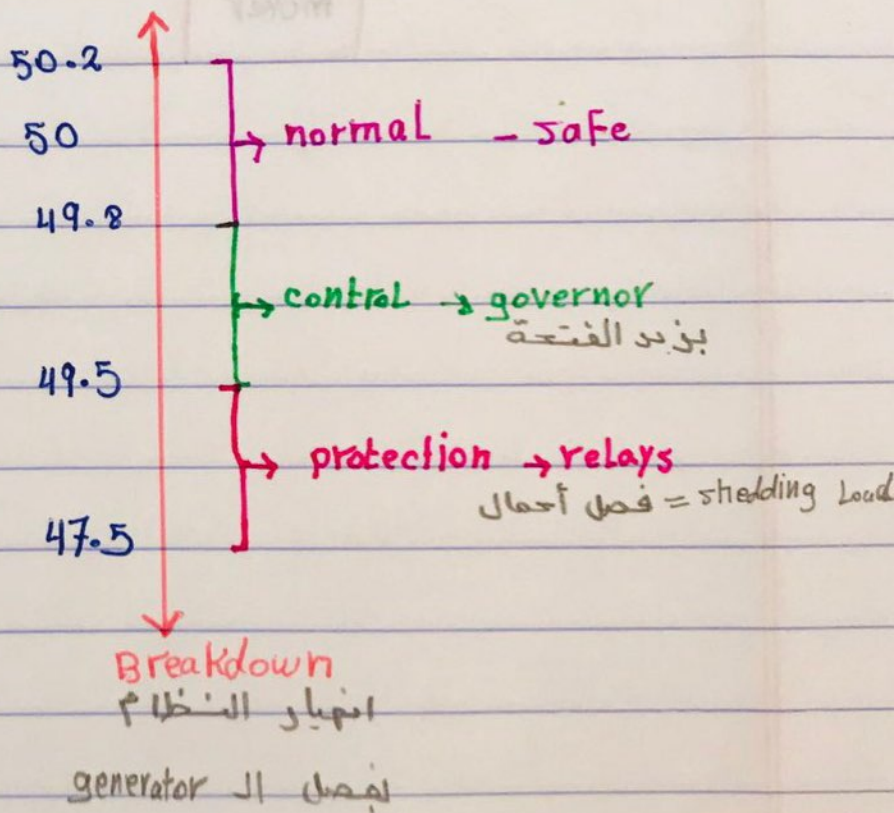 50.2
50 normal - safe
49.8
control → governor
بزيد الفتحة
49.5
protection → relays
فصل أحمال = shedding Load
47.5
Breakdown
انهيار النظام
نفصل الـ generator